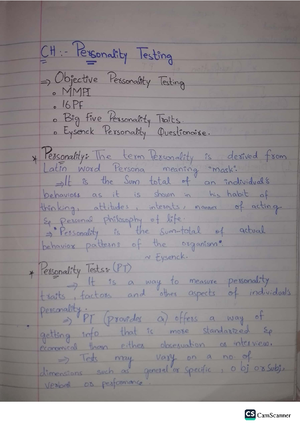 CH :- Personality Testing
⇒ Objective Personality Testing
∘ MMPI
∘ 16 PF
∘ Big Five Personality Traits
∘ Eysenck Personality Questionaire.
* Personality: The term Personality is derived from
Latin word Persona meaning "mask".
⇒ It is the Sum total of an individual's
behaviour as it is shown in his habit of
thinking, attitudes, interests, manner of acting
& personal philosophy of life.
⇒ "Personality is the sum-total of actual
behavior patterns of the organism"
~ Eysenck
* Personality Tests:- (PT)
⇒ It is a way to measure personality
traits, factors and other aspects of individual's
personality.
⇒ PT (provides a) offers a way of
getting info that is more standardized &
economical than other observation or interviews.
⇒ Tests may vary on a no of
dimensions such as general or specific, Obj or Subj,
verbal or performance
CS CamScanner